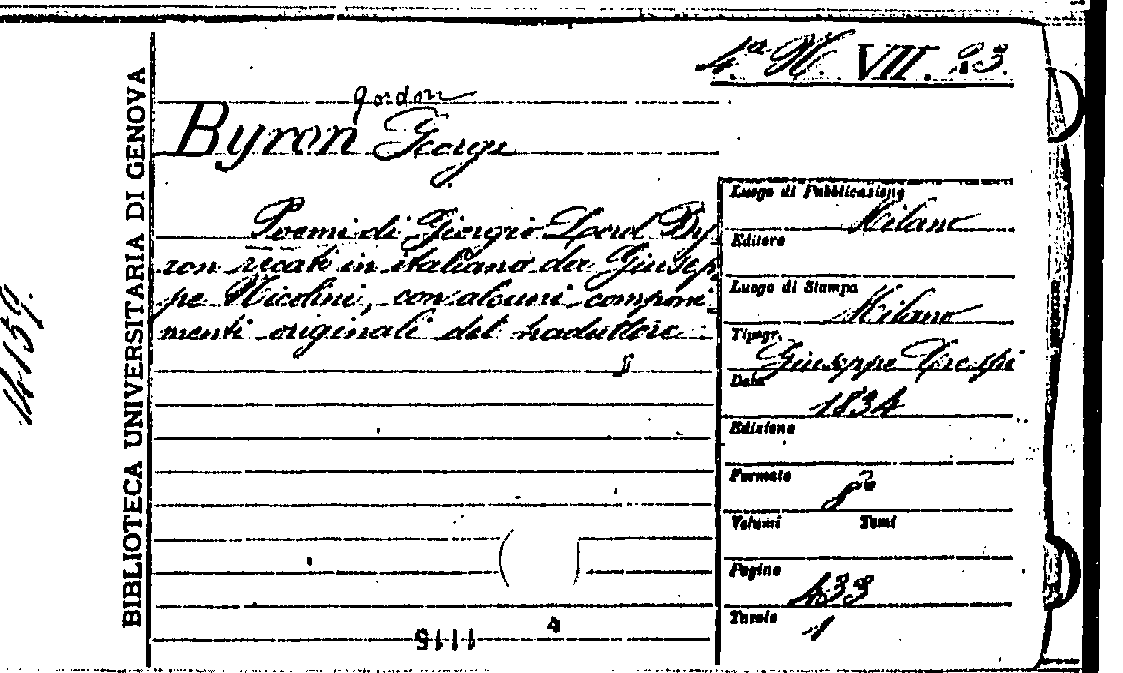 4.ª N. VII. 23.
gordon
Byron George
Poemi di Giorgio Lord By
ron recati in italiano da Giusep
pe Nicolini, con alcuni componi
menti originali del traduttore
Luogo di Pubblicazione
Milano
Editore
Luogo di Stampa
Milano
Tipogr.
Giuseppe Crespi
Data
1834
Edizione
Formato
8º
Volumi Tomi
Pagine
433
Tavole
1
BIBLIOTECA UNIVERSITARIA DI GENOVA
14159.